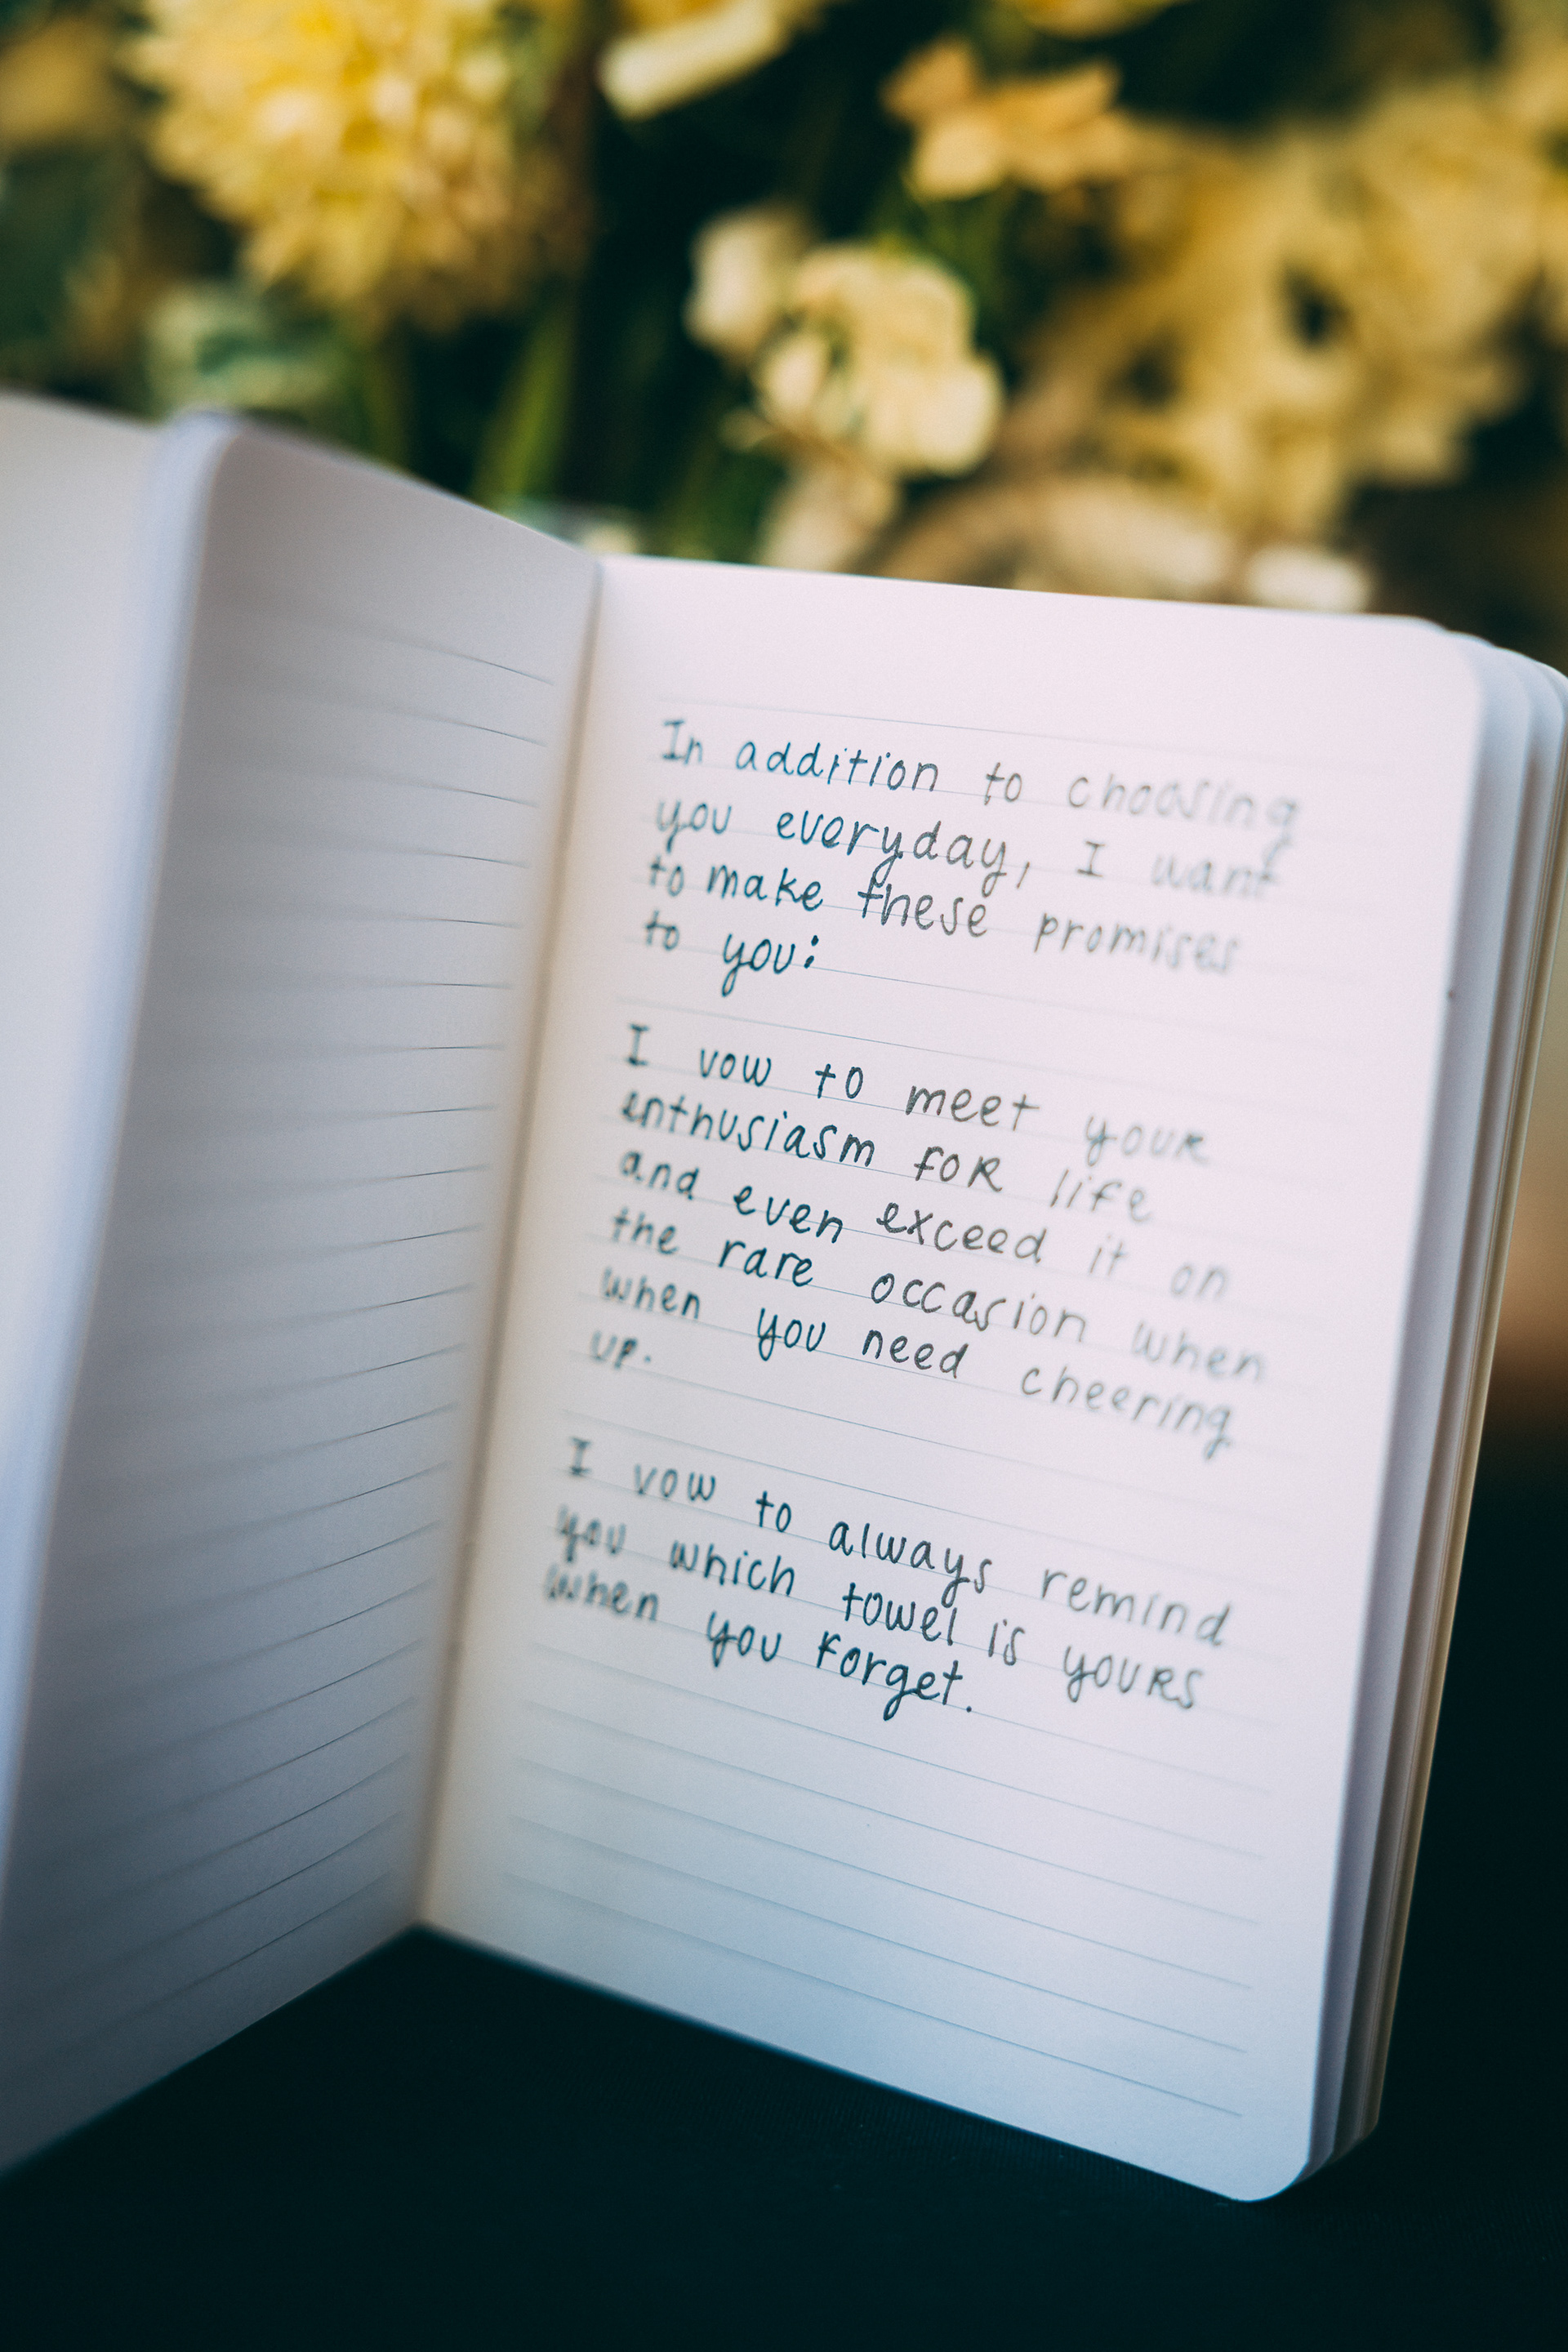 In addition to choosing
you everyday, I want
to make these promises
to you:
I vow to meet your
enthusiasm for life
and even exceed it on
the rare occasion when
when you need cheering
up.
I vow to always remind
you which towel is yours
when you forget.